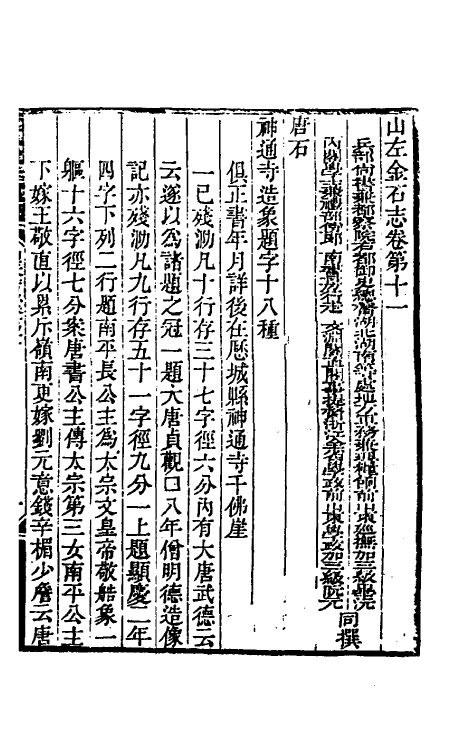 山左金石志卷第十一
兵部尚書兼都察院右都御史總督湖北湖南等處地方軍務兼理糧餉前山東巡撫加三級畢沅
內閣學士兼禮部侍郎 南書房行走 提督浙江全省學政前山東學政加三級阮元
同撰
唐石
神通寺造象題字十八種
俱正書年月詳後在歷城縣神通寺千佛崖
一已殘泐凡十行存三十七字徑六分內有大唐武德云
云遂以為諸題之冠一題大唐貞觀口八年僧明德造像
記亦殘泐凡九行存五十一字徑九分一上題顯慶二年
四字下列二行題南平長公主為太宗文皇帝敬造象一
軀十六字徑七分案唐書公主傳太宗第三女南平公主
下嫁王敬直以累斥嶺南更嫁劉元意錢辛楣少詹云唐